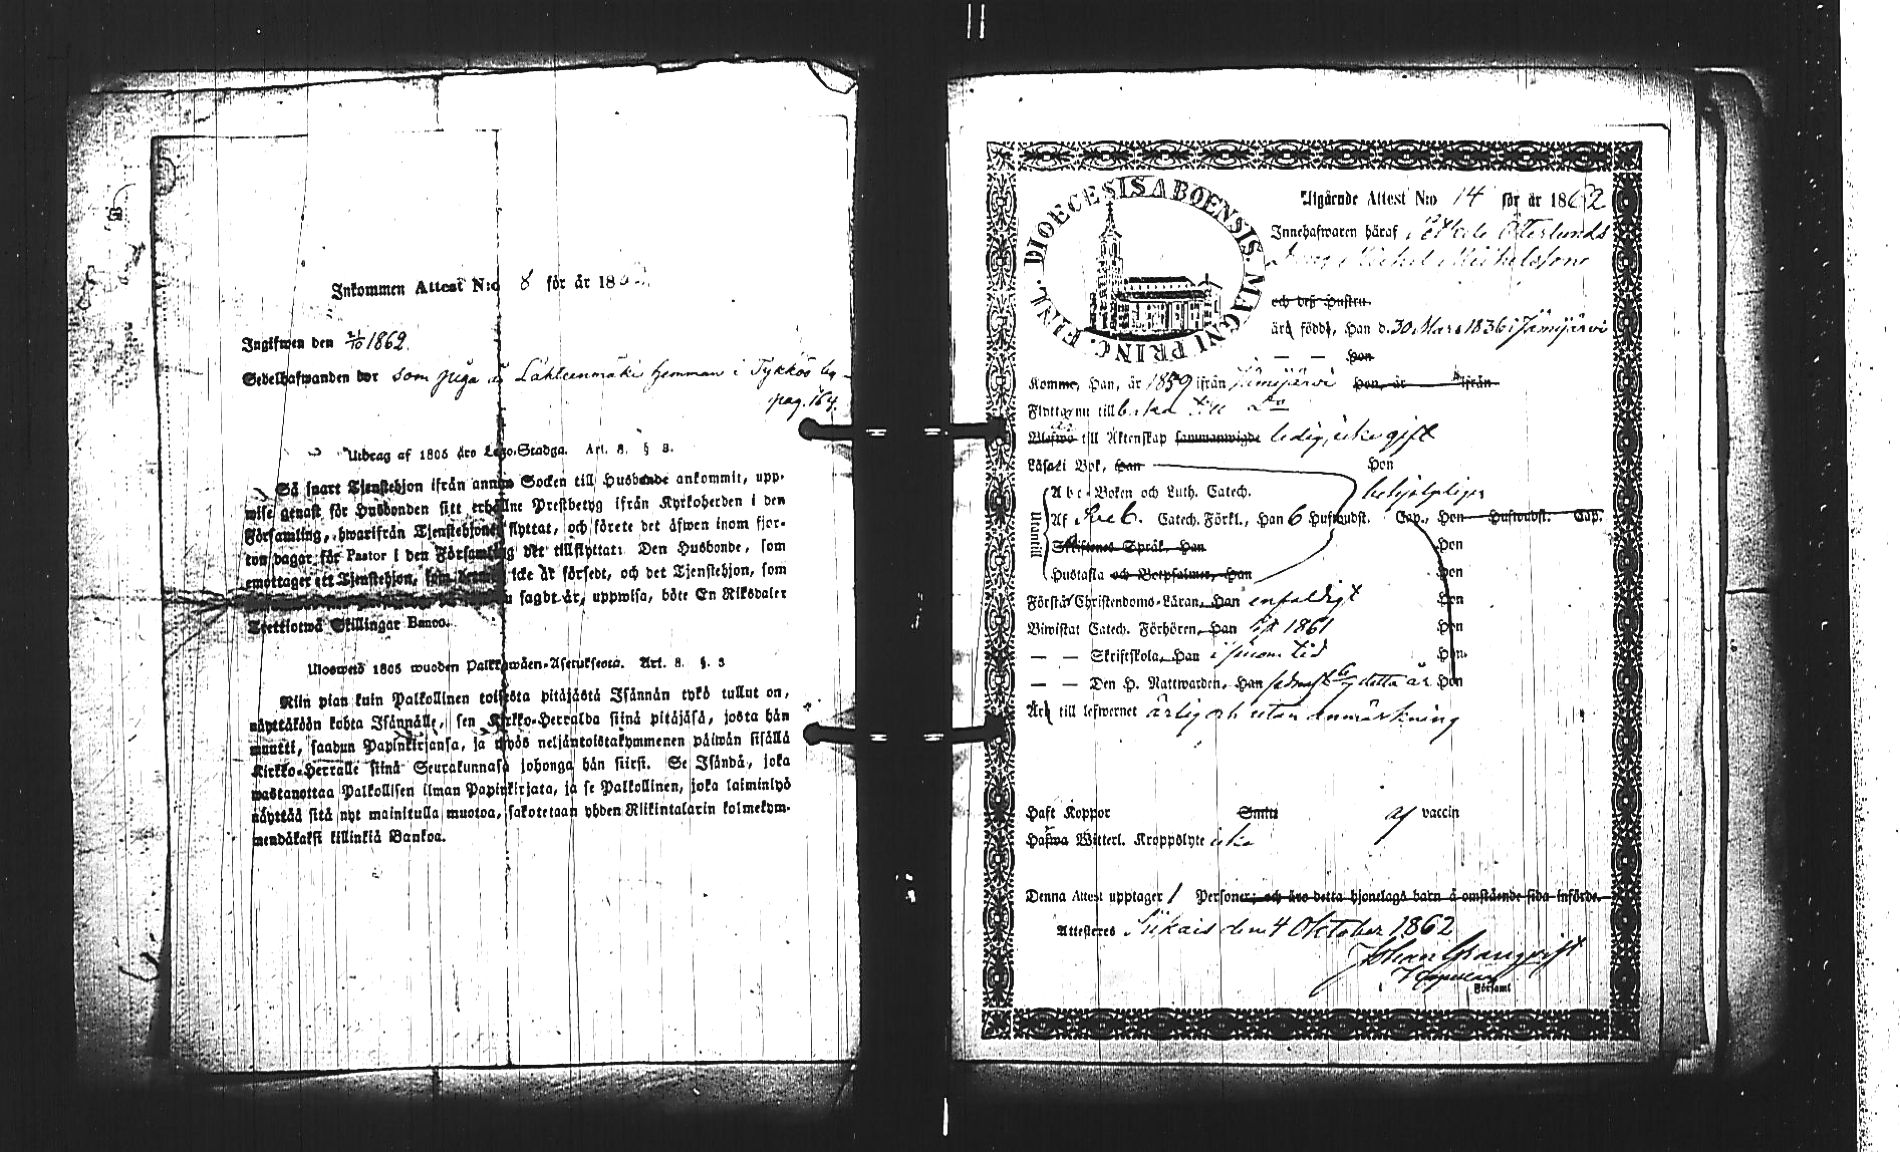 Inkommen Attest N:o 8 för år 186
Ingifwen den 5/10 1862.
Sedelhafwanden bor som piga å Lähteenmäki hemman i Tykkös by
pag. 164.
Utdrag af 1805 års Lego-Stadga. Art. 8. § 3.
Så snart Tjenstehjon ifrån annan Socken till Husbonde ankommit, upp-
wise genast för Husbonden sitt erhållne Prestbetyg ifrån Kyrkoherden i den
Församling, hwarifrån Tjenstehjonet flyttat, och förete det äfwen inom fjor-
ton dagar för Pastor i den Församling det tillflyttat. Den Husbonde, som
emottager ett Tjenstehjon, som icke är försedt, och det Tjenstehjon, som
sagdt är, uppwisa, böte En Riksdaler
Trettiotwå Skillingar Banco.
Uloswetö 1805 wuoden Palkkawäen-Asetuksesta. Art. 8. §. 3
Niin pian kuin Palkollinen toisesta pitäjästä Isännän tykö tullut on,
näyttäköön kohta Isännälle, sen Kirkko-Herralda siinä pitäjäsä, josta hän
muutti, saadun Papinkirjansa, ja myös neljäntoistakymmenen päiwän sisällä
Kirkko-Herralle siinä Seurakunnasa johonga hän siirsi. Se Isändä, joka
wastanottaa Palkollisen ilman Papinkirjata, ja se Palkollinen, joka laiminlyö
näyttää sitä nyt mainitulla muotoa, sakotetaan yhden Riikintalarin kolmekym-
mendäkaksi killinkiä Bankoa.
DIOECESIS ABOENSIS. MAGNI PRINC. FINL.
Utgående Attest N:o 14 för år 1862
Innehafwaren häraf Otterlunds
Michel Michelsson
och deß Hustru
äro födde, Han d. 30 Mars 1836 i Jämijärvi
— — Hon
Komme, Han, år 1859 ifrån Jämijärvi Hon, år ifrån
Flytta nu tillbaka till Do
till Äktenskap sammanwigde ledig, icke gift
Läsa i Bok, Han Hon
Utantill
Abc-Boken och Luth. Catech. behjelpligen
Af Sveb. Catech. Förkl., Han 6 Hufwudst. Cap., Hon Hufwudst. Cap.
Skriftenes Språk, Han Hon
Hustafla och Botpsalmer, Han Hon
Förstår Christendoms-Läran, Han enfaldigt Hon
Biwistat Catech. Förhören, Han 1861 Hon
— — Skriftskola, Han i sinom tid Hon
— — Den H. Nattwarden, Han sednast detta år Hon
Är till lefwernet ärlig och utan anmärkning
Haft Koppor Smitt af vaccin
Hafwa Witterl. Kroppslyte icke
Denna Attest upptager 1 Personer; och äro detta hjonelags barn å omstående sida införde.
Attesteres Siikais den 4 Oktober 1862
Johan Granqvist
Kapellan
Församl